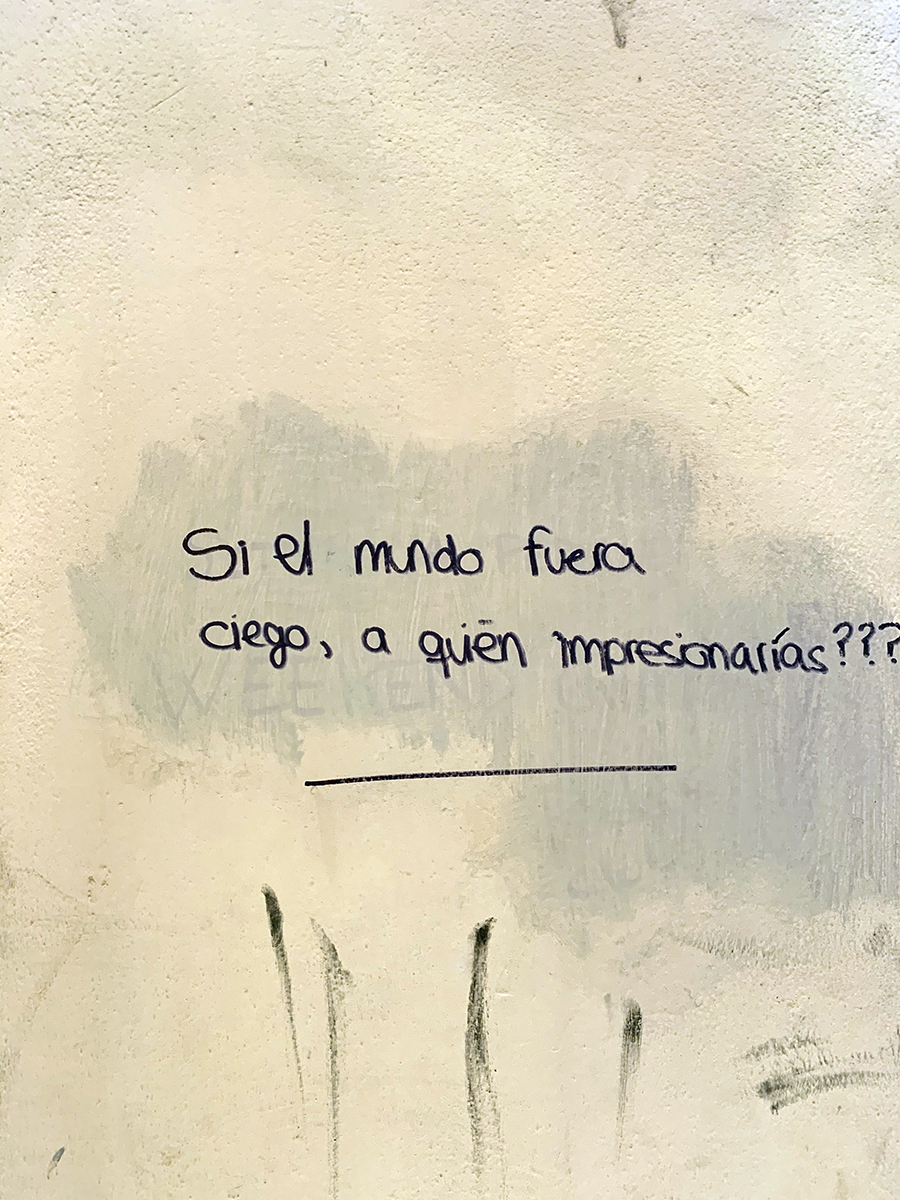 Si el mundo fuera
ciego, a quién impresionarías???
WEEKEND